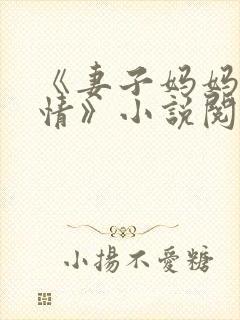 《妻子妈妈
情》小說閱
小揚不愛糖